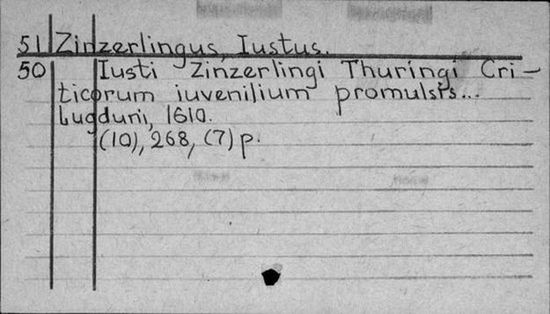 51 Zinzerlingus, Iustus.
50 Iusti Zinzerlingi Thuringi Cri-
ticorum iuvenilium promulsis...
Lugduni, 1610.
(10), 268, (7) p.